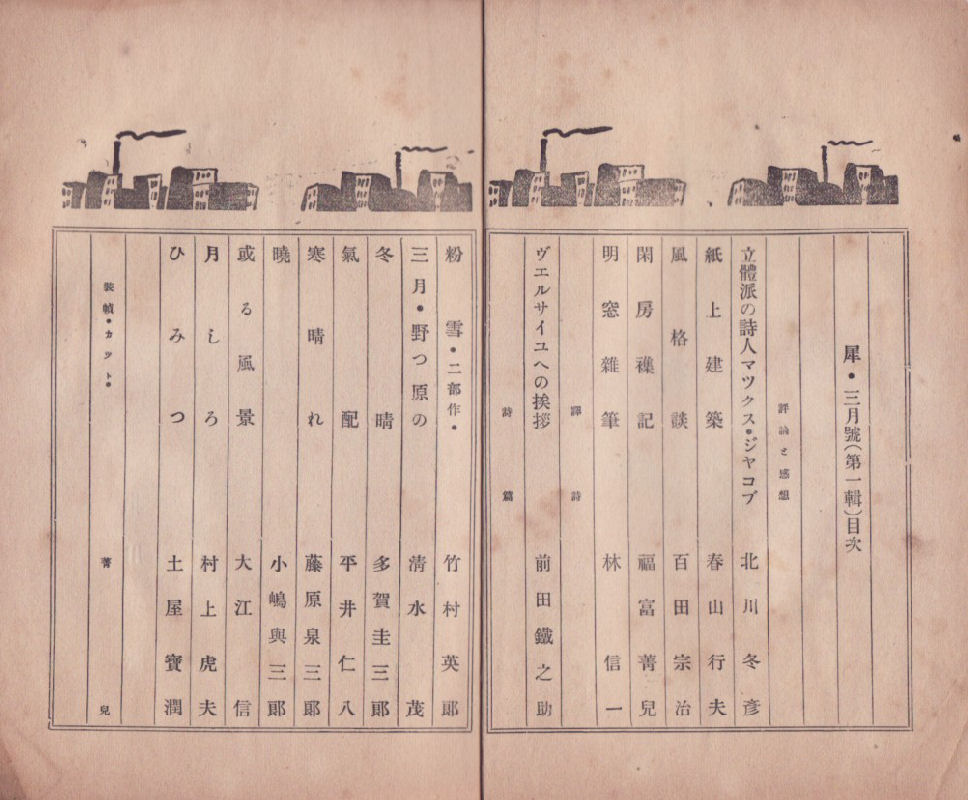 犀・三月號(第一輯)目次
評論と感想
立體派の詩人マツクス・ジヤコブ 北川冬彦
紙上建築 春山行夫
風格談 百田宗治
閑房襍記 福富菁兒
明窓雜筆 林信一
譯詩
ヴエルサイユへの挨拶 前田鐵之助
詩篇
粉雪・二部作・ 竹村英郎
三月・野つ原の 清水茂
冬晴 多賀圭三郎
氣配 平井仁八
寒晴れ 藤原泉三郎
曉 小嶋與三郎
或る風景 大江信
月しろ 村上虎夫
ひみつ 土屋寶潤
裝幀・カツト・ 菁兒